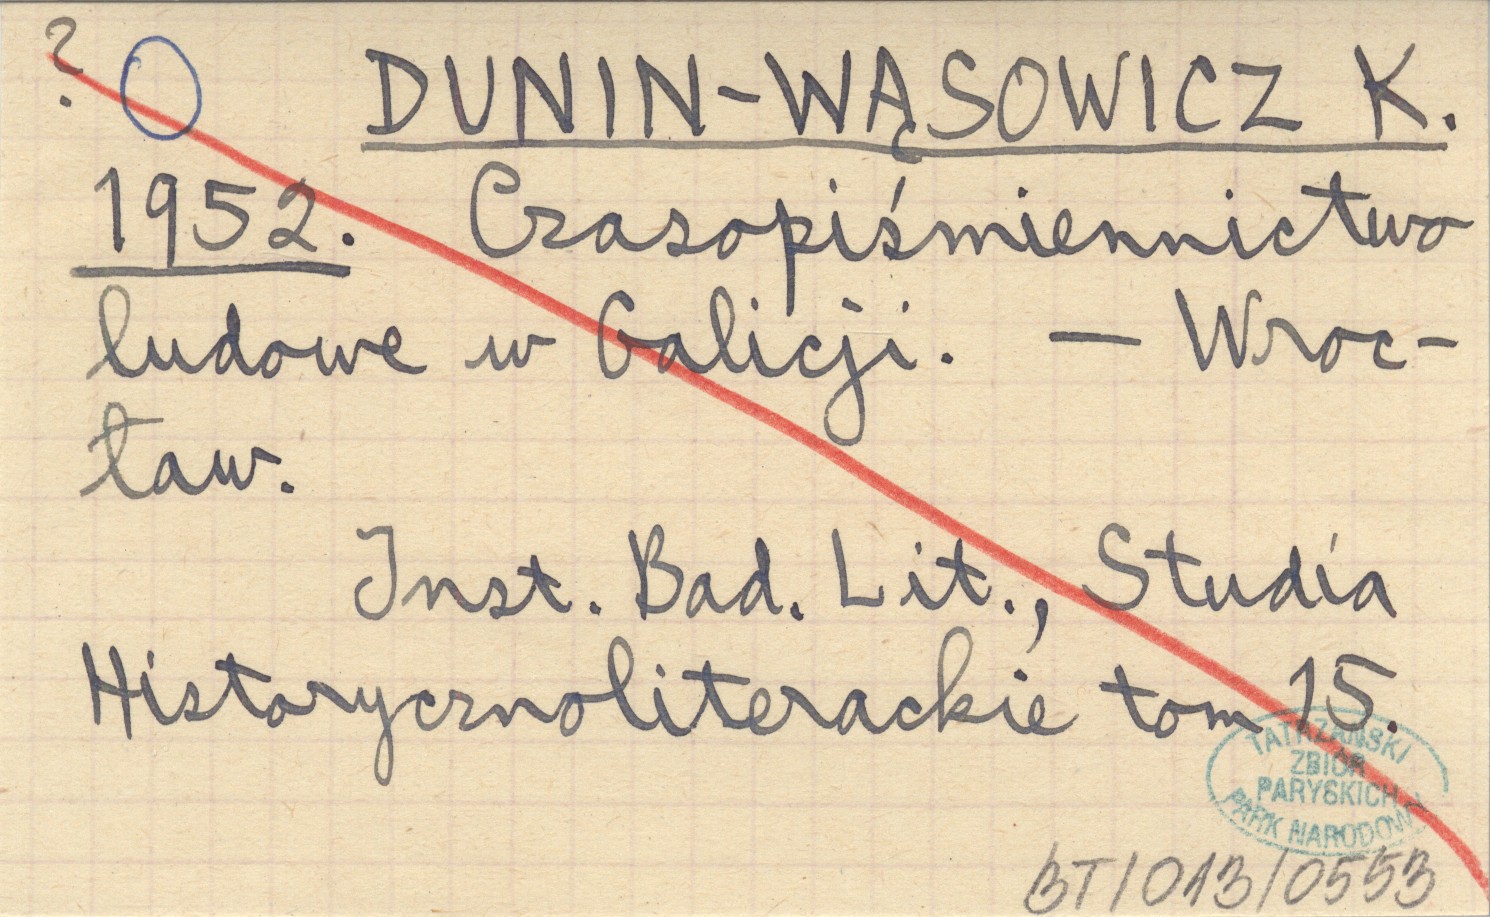 ? O DUNIN-WĄSOWICZ K.
1952. Czasopiśmiennictwo
ludowe w Galicji. — Wroc-
ław.
Inst. Bad. Lit., Studia
Historycznoliterackie tom 15.
TATRZAŃSKI
ZBIÓR
PARYSKICH
PARK NARODOWY
BT/013/0553